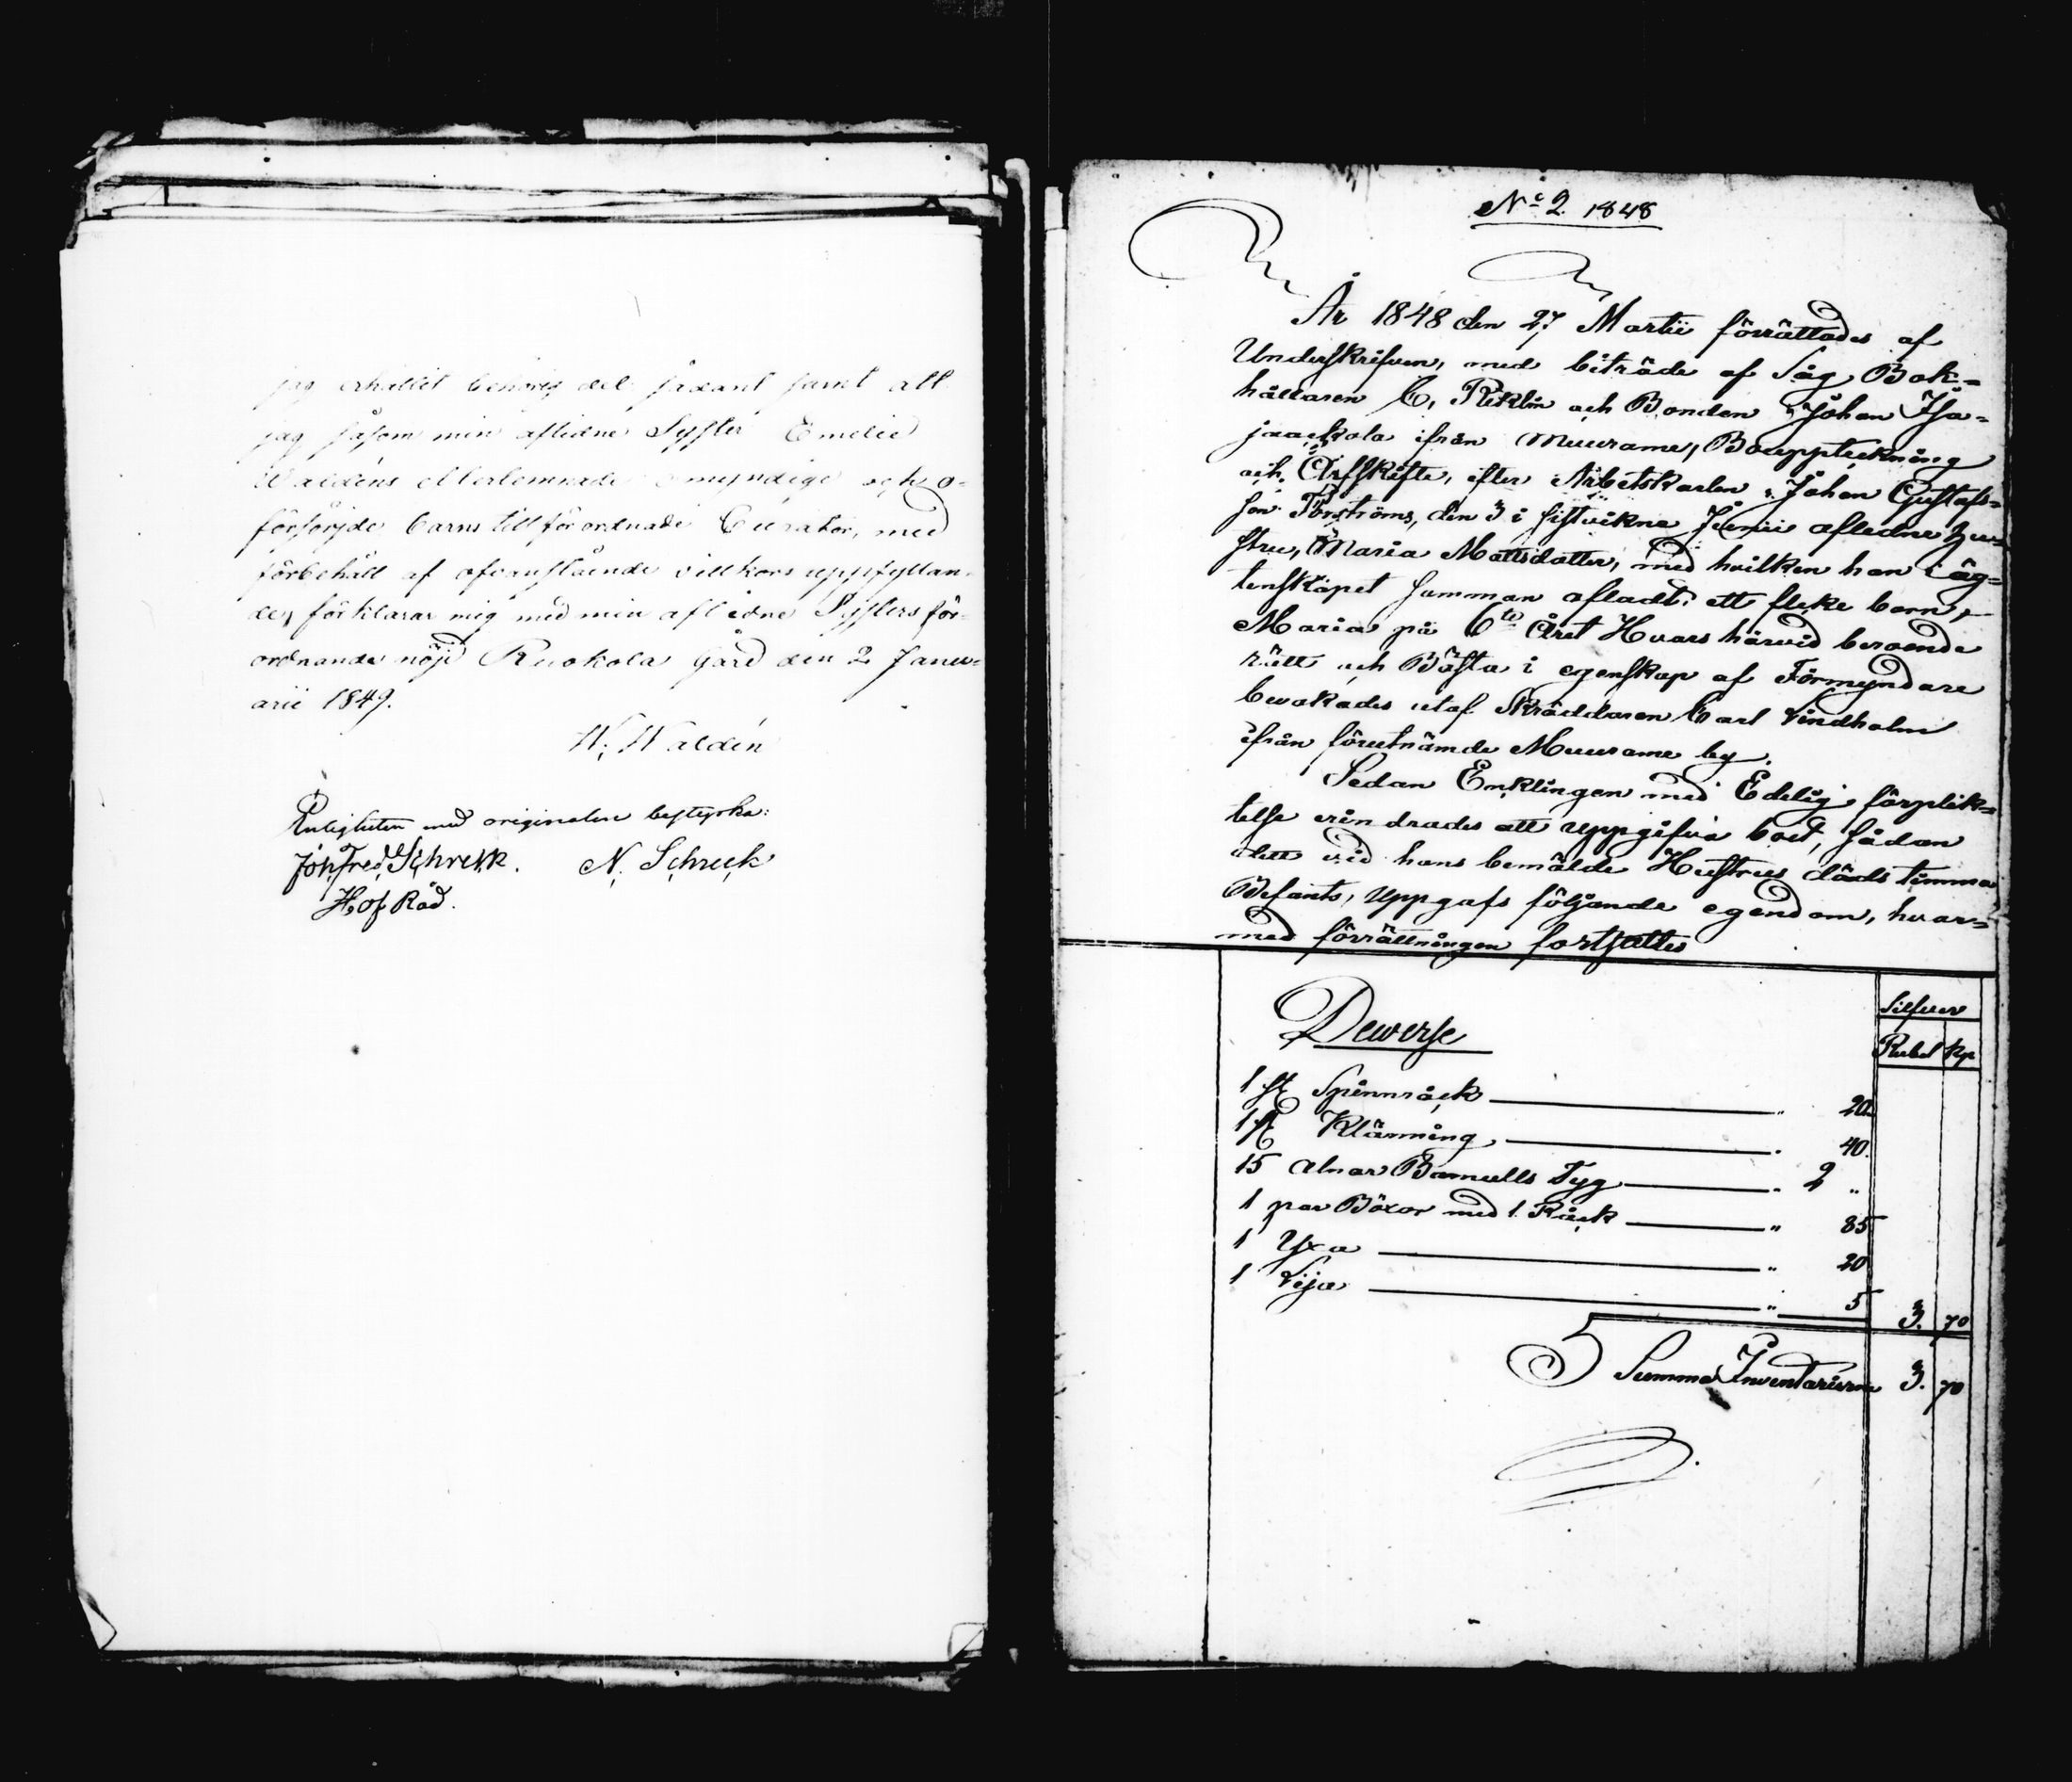 jag erhållit benörig del sådant samt att
jag såsom min aflidne Syster Emelie
Waldéns efterlemnade omyndige och o-
försörjde barns tillförordnade Curator, med
förbehåll af ofvanstående villkors uppfyllan-
de, förklarar mig med min aflidne Systers för-
ordnande nöjd Ruokola Gård den 2 Janu-
arii 1849.
W. Waldén
Riktigheten med originalen bestyrka:
Joh. Fred. Schreck. N. Schreck
Hof Råd.
No 2 1848
År 1848 den 27 Martii förrättades af
Underskrifven, med biträde af Såg Bok-
hållaren C. Riklin och Bonden Johan Isa-
jaackola ifrån Muurame, Bouppteckning
och Arfskifte, efter Arbetskarlen Johan Gustafs-
son Forströms, den 3 i sistvikne Junii afledne hu-
stru, Maria Mattsdotter, med hvilken han i äg-
tenskapet samman afladt ett fleke barn,
Maria på 6te Året Hvars härvid beroende
rätt och Bästa i egenskap af Förmyndare
bevakades utaf Skräddaren Carl Lindholm
ifrån förutnämde Muurame by.
Sedan Enklingen med Edelig förplik-
telse erindrades att uppgifva boet, sådan
dett vid hans bemälde Hustrus döds timma
Befants, uppgafs följande egendom, hvar-
med förrättningen fortsattes
Silfver
Rubel Kp
Dewerse
1 st Spinnråck " 20.
1 st Klänning " 40.
15 alnar Bomulls Tyg " 2 "
1 par Böxor med 1 Råck " 85
1 Yxa " 20
1 Lija " 5 3. 70
Summa Inventarium 3. 70